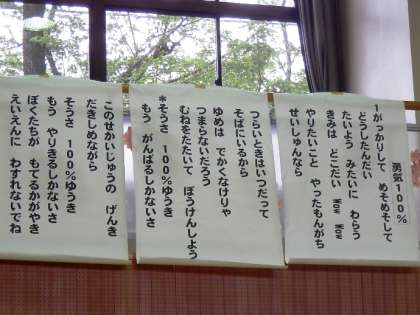 勇気100%
1 がっかりして めそめそして
どうしたんだい
たいよう みたいに わらう
きみは どこだい Wow Wow
やりたいこと やったもんがち
せいしゅんなら
つらいときはいつだって
そばにいるから
ゆめは でかくなけりゃ
つまらないだろう
むねをたたいて ぼうけんしよう
*そうさ 100%ゆうき
もう がんばるしかないさ
このせかいじゅうの げんき
だきしめながら
そうさ 100%ゆうき
もう やりきるしかないさ
ぼくたちが もてるかがやき
えいえんに わすれないでね